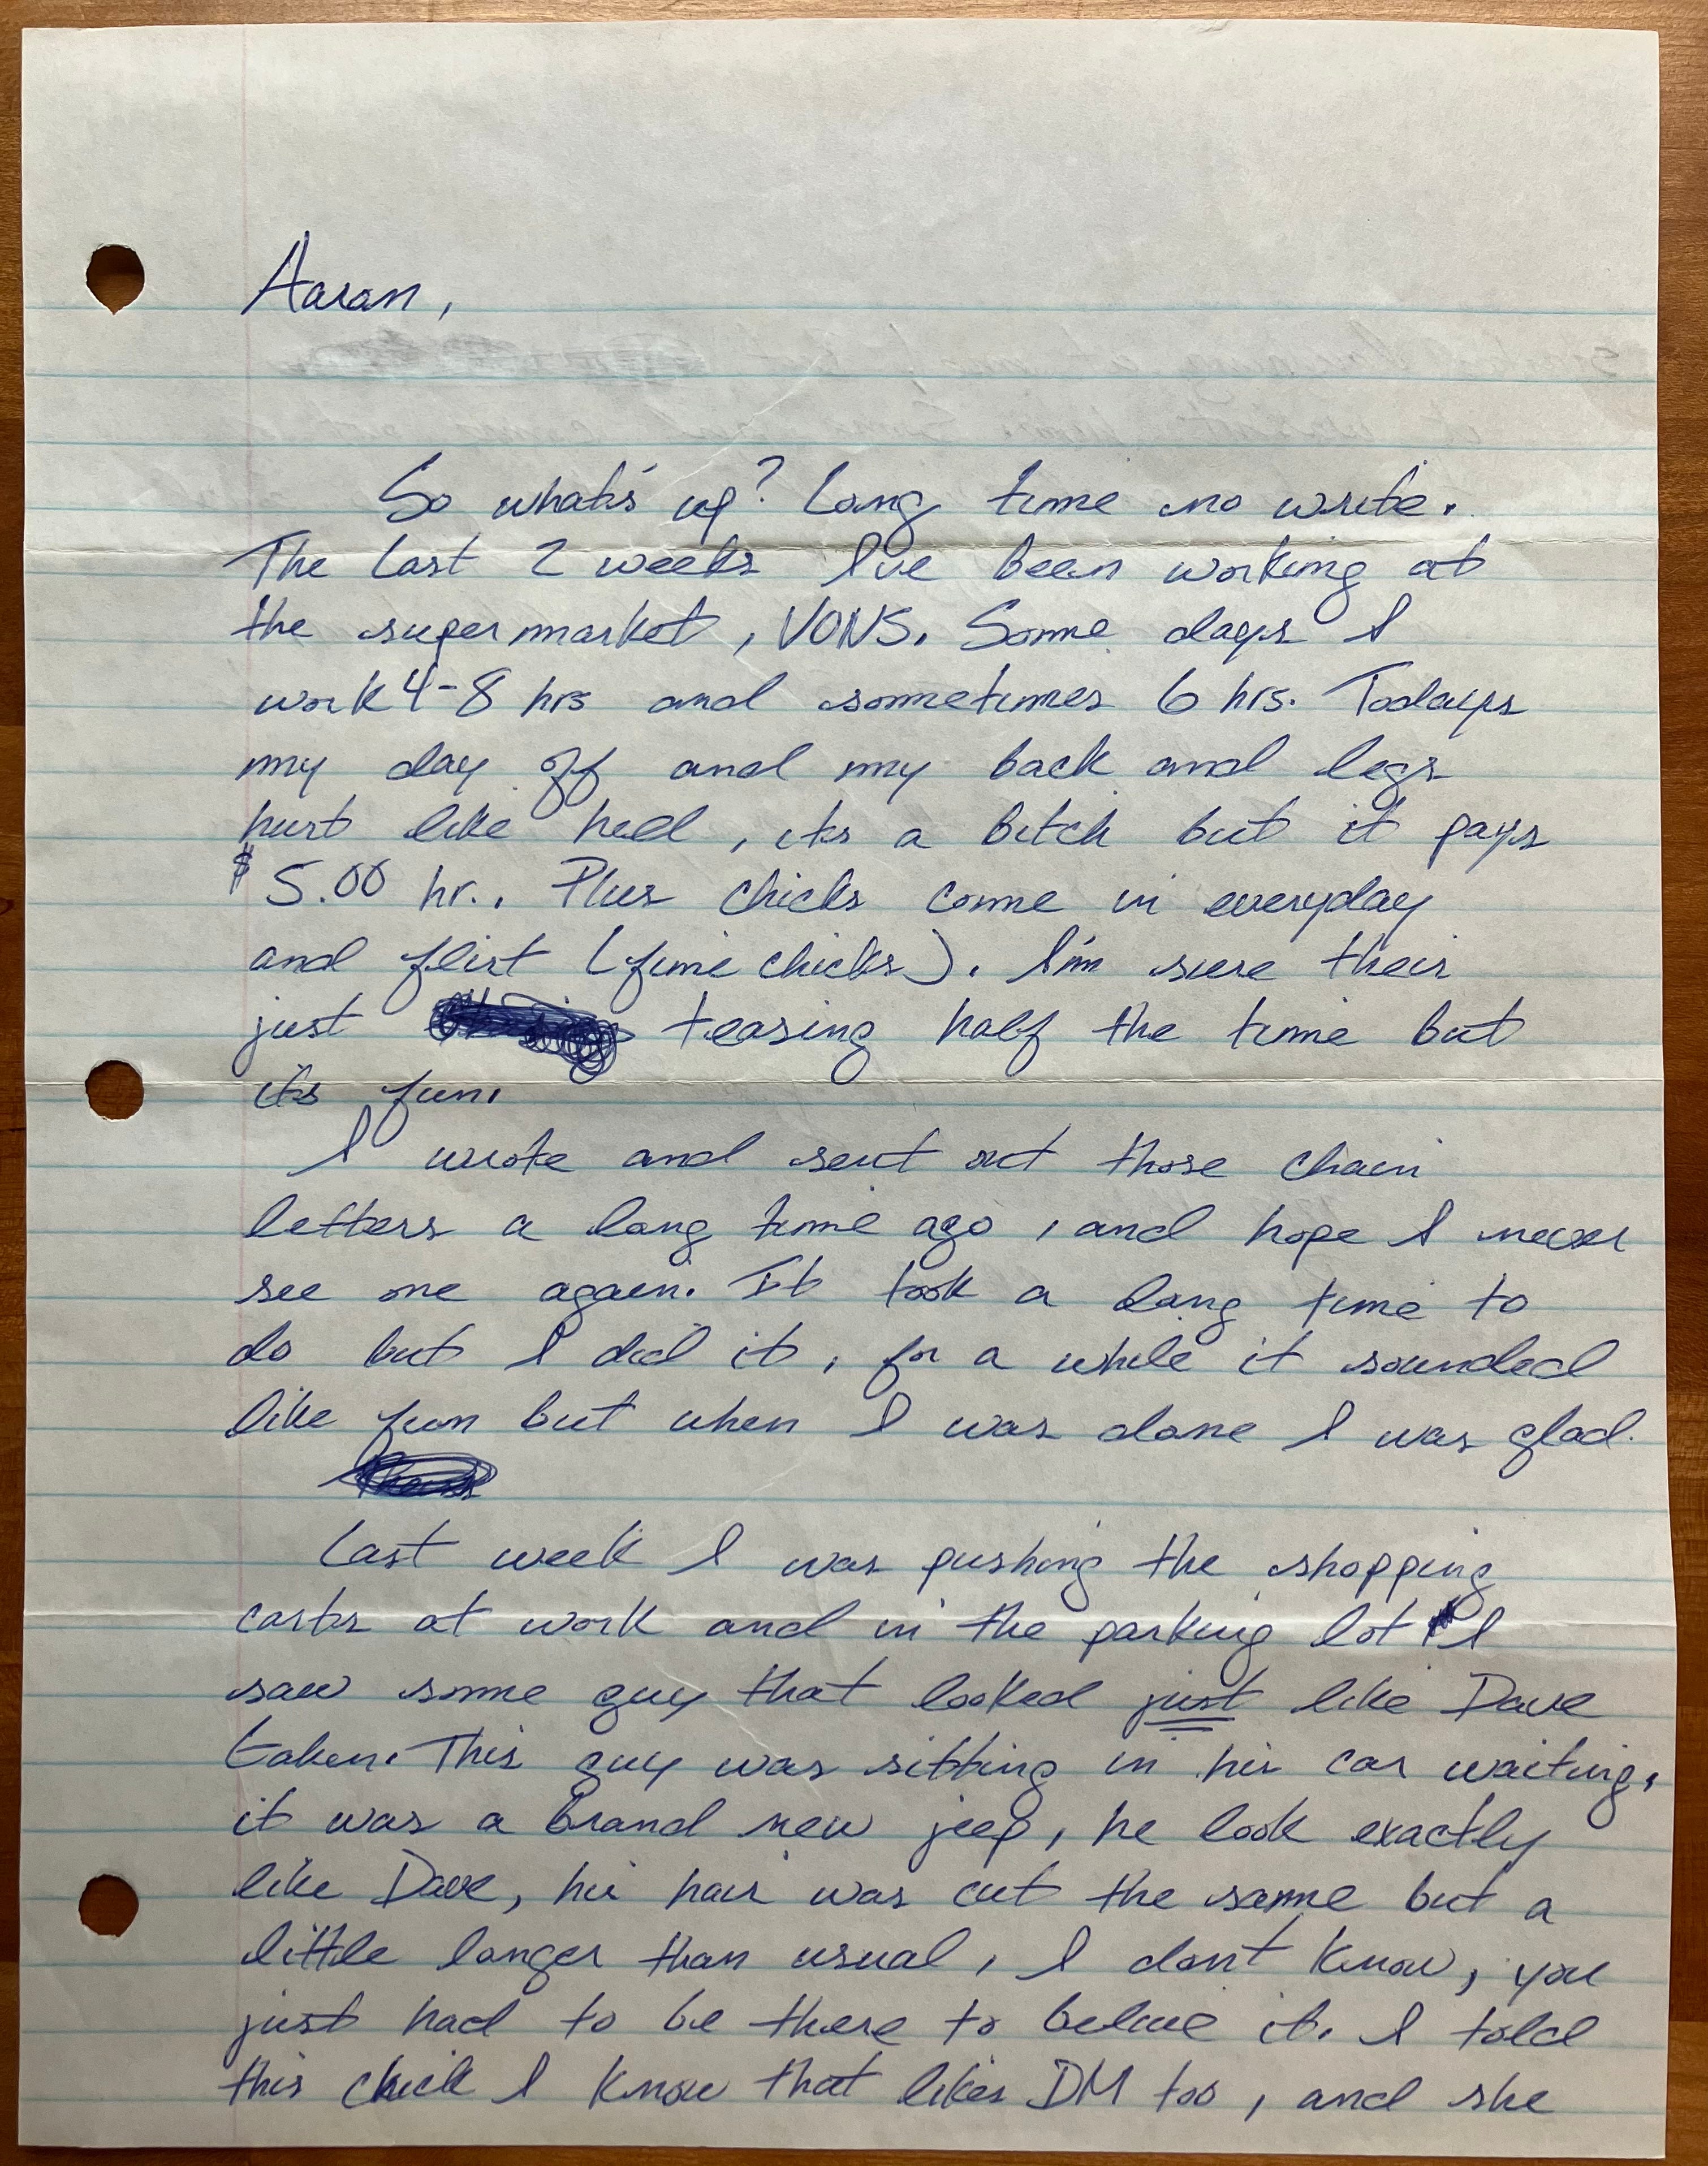 Aaron,
So what's up? Long time no write.
The last 2 weeks I've been working at
the supermarket, VONS. Some days I
work 4-8 hrs and sometimes 6 hrs. Todays
my day off and my back and legs
hurt like hell, its a bitch but it pays
$5.00 hr.. Plus chicks come in everyday
and flirt (fine chicks). I'm sure their
just teasing half the time but
its fun.
I wrote and sent out those chain
letters a long time ago, and hope I never
see one again. It took a long time to
do but I did it, for a while it sounded
like fun but when I was done I was glad.
Last week I was pushing the shopping
carts at work and in the parking lot I
saw some guy that looked just like Dave
Gahen. This guy was sitting in his car waiting,
it was a brand new jeep, he look exactly
like Dave, his hair was cut the same but a
little longer than usual, I don't know, you
just had to be there to beleive it. I told
this chick I know that likes DM too, and she